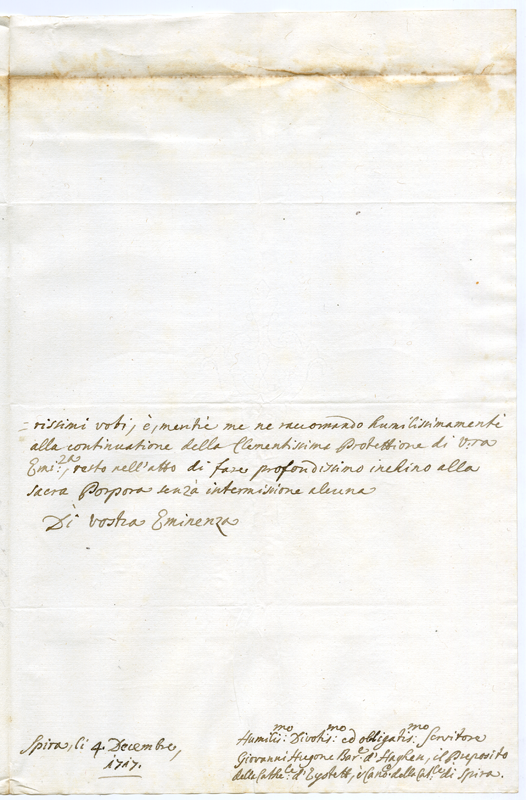 =rissimi voti, è, mentrè me ne raccomando humilissimamente
alla continuatione della Clementissima Protettione di V:ra
Emi:za, resto nell'atto di fare profondissimo inchino alla
sacra Porpora senzà intermissione alcuna
Di vostra Eminenza
Spira, li 4 Decembre,
1717.
Humilis:mo Divotis:mo ed obligatis:mo Servitore
Giovanni Hugone Bar:e d'Haghen, il Preposito
della Cathe:le d'Eystett, è Cano: della Cat:le di Spira.